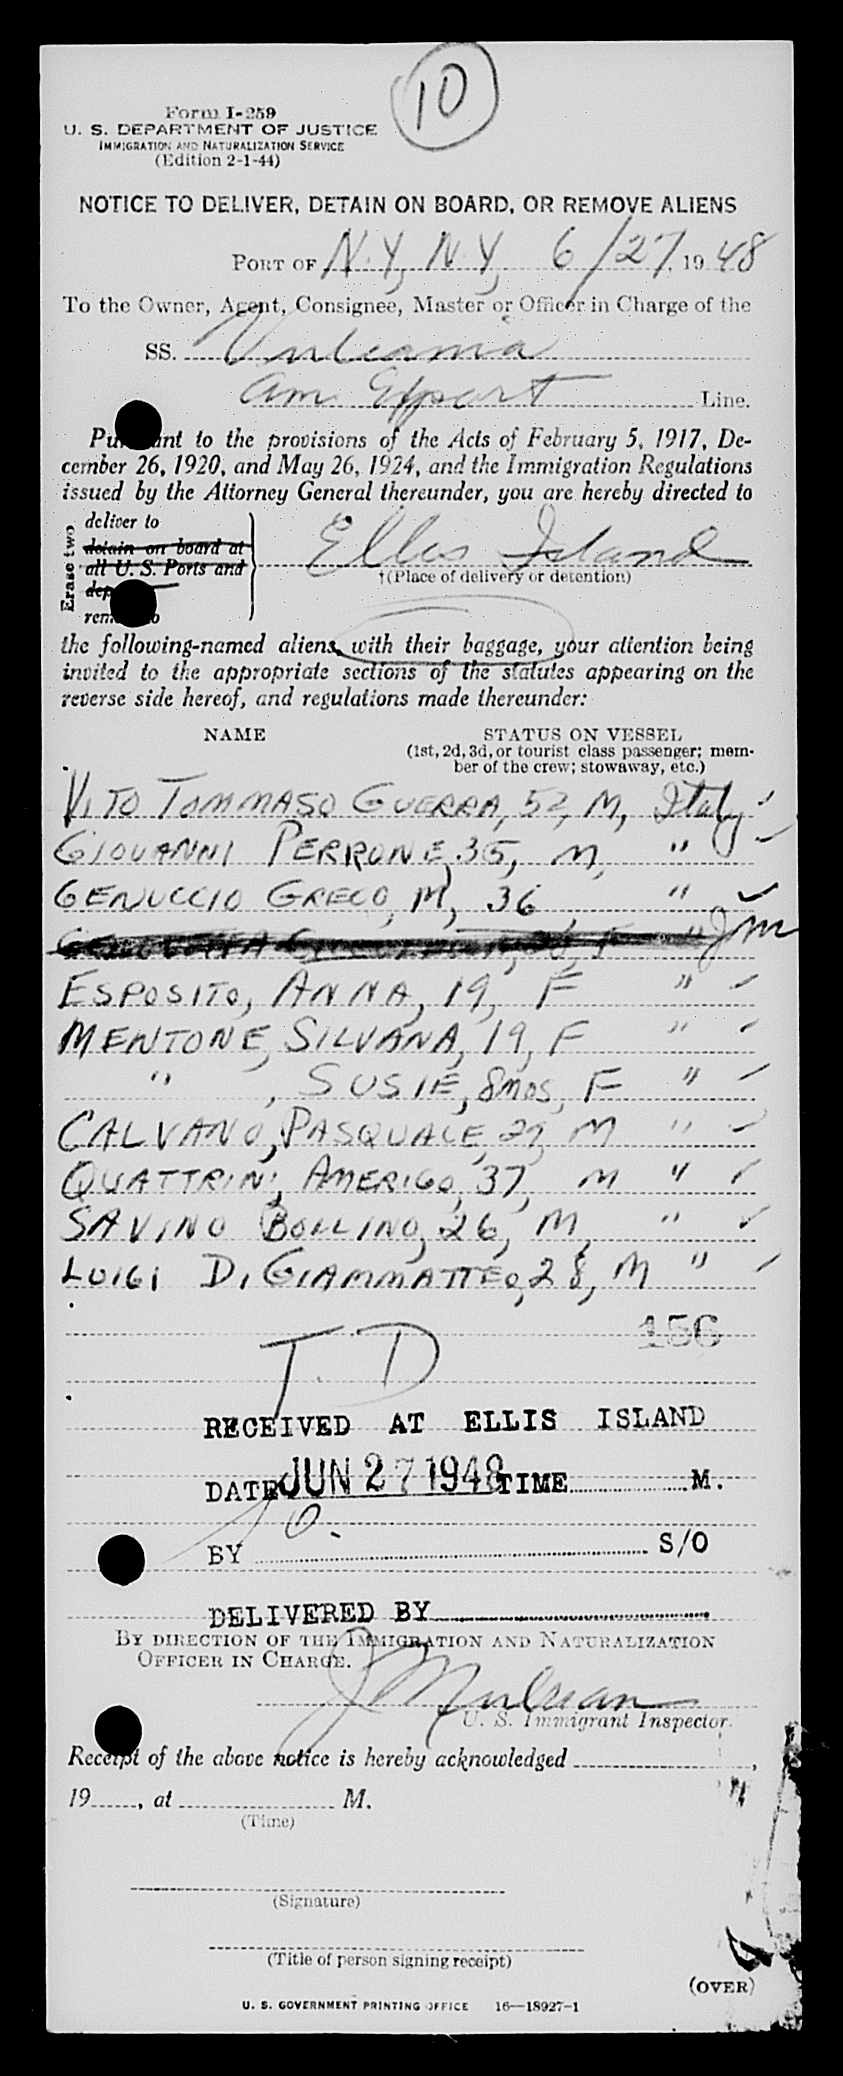 10
Form I-259
U. S. DEPARTMENT OF JUSTICE
IMMIGRATION AND NATURALIZATION SERVICE
(Edition 2-1-44)
NOTICE TO DELIVER, DETAIN ON BOARD, OR REMOVE ALIENS
PORT OF N.Y., N.Y., 6/27, 1948
To the Owner, Agent, Consignee, Master or Officer in Charge of the
SS. Vulcania
Am. Export Line.
Pursuant to the provisions of the Acts of February 5, 1917, De-
cember 26, 1920, and May 26, 1924, and the Immigration Regulations
issued by the Attorney General thereunder, you are hereby directed to
Erase two
deliver to
detain on board at
all U. S. Ports and
Ellis Island
†(Place of delivery or detention)
the following-named aliens, with their baggage, your attention being
invited to the appropriate sections of the statutes appearing on the
reverse side hereof, and regulations made thereunder:
NAME STATUS ON VESSEL
(1st, 2d, 3d, or tourist class passenger; mem-
ber of the crew; stowaway, etc.)
VITO TOMMASO GUERRA, 52, M, Italy ✓
GIOVANNI PERRONE, 35, M, " ✓
GENUCCIO GRECO, M, 36, " ✓
F " Jm
ESPOSITO, ANNA, 19, F " ✓
MENTONE, SILVANA, 19, F " ✓
" , SUSIE, 8mos, F " ✓
CALVANO, PASQUALE, 27, M " ✓
QUATTRINI, AMERIGO, 37, M " ✓
SAVINO BOLLINO, 26, M, " ✓
LUIGI DI GIAMMATTEO, 28, M " ✓
156
T. D
RECEIVED AT ELLIS ISLAND
DATE JUN 27 1948 TIME M.
BY S/O
DELIVERED BY
BY DIRECTION OF THE IMMIGRATION AND NATURALIZATION
OFFICER IN CHARGE.
U. S. Immigrant Inspector.
Receipt of the above notice is hereby acknowledged ,
19 , at M.
(Time)
(Signature)
(Title of person signing receipt)
(OVER)
U. S. GOVERNMENT PRINTING OFFICE 16—18927-1